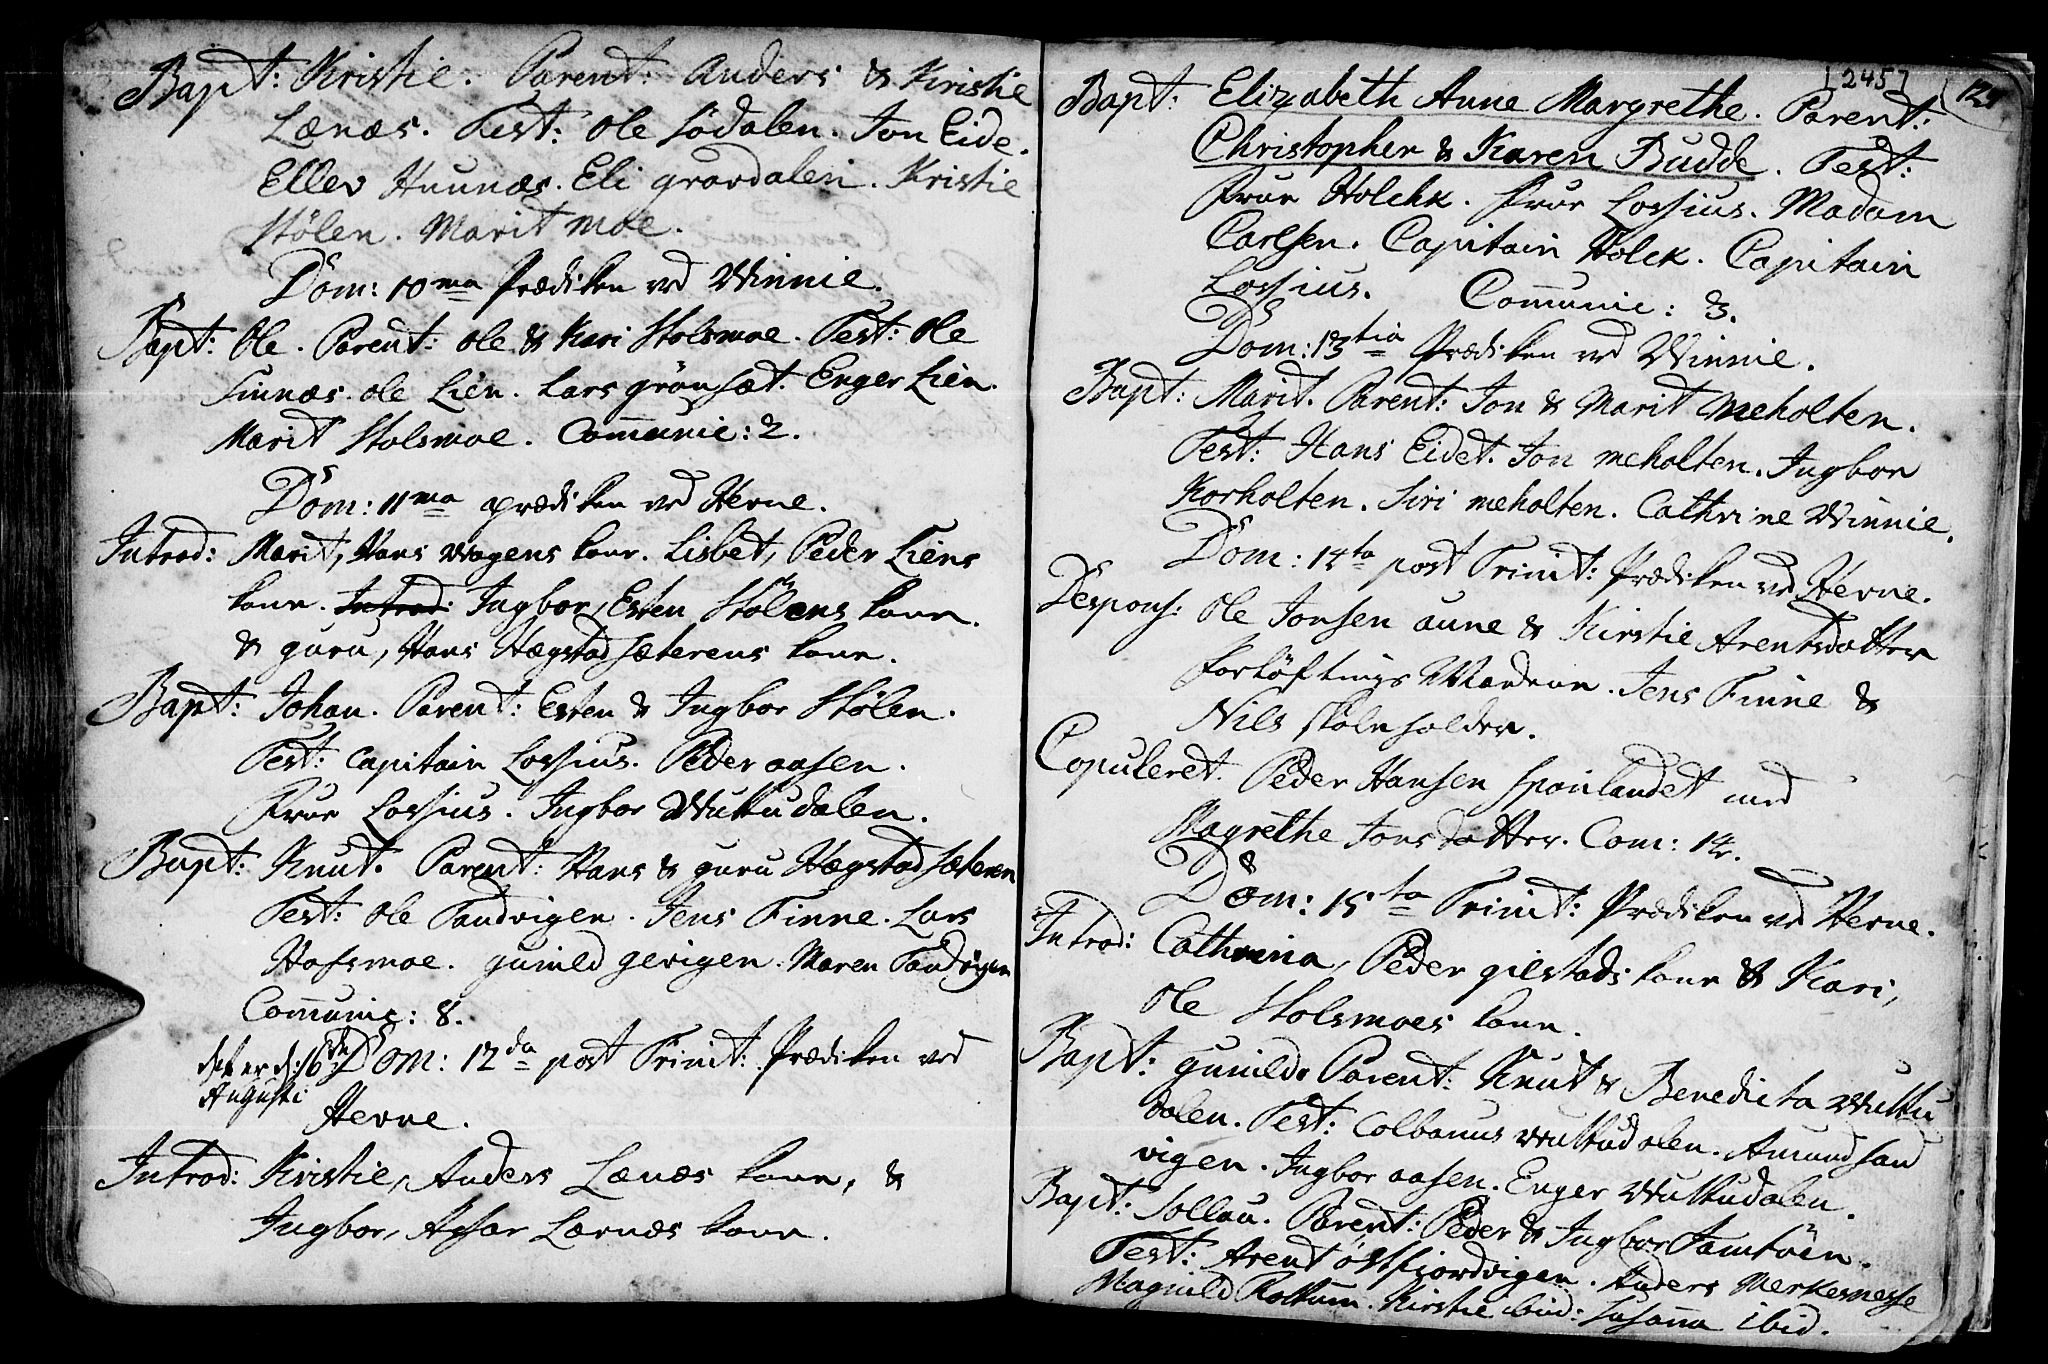 Bapt: Kristie. Parent: Anders & Kristie
Lænæs. Test: Ole Södalen. Jon Eide.
Ellev Hunnæs. Eli grøvdalen. Kristie
Stølen. Marit Moe.
Dom: 10ma Prædiken ved Winnie.
Bapt: Ole. Parent: Ole & Kari Stolsmoe. Test: Ole
Finnæs. Ole Lien. Lars grönsæt. Enger Lien.
Marit Stolsmoe. Communic: 2.
Dom: 11ma prædiken ved Herne.
Introd: Marit, Hans Wogens kone. Lisbet, Peder Liens
kone. Introd: Ingbor, Esten Stölens kone.
& guru, Hans Hægstadsæterens kone.
Bapt: Johan. Parent: Esten & Ingbor Stølen.
Test: Capitain Lossius. Peder aasen.
Frue Lossius. Ingbor Wuttudalen.
Bapt: Knut. Parent: Hans & guru Hægstadsæteren
Test: Ole Tandvigen. Jens Finne. Lars
Hafsmoe. gunild gievigen. Maren Tandvigen
Communic: 8.
det er d: 16de Dom: 12da post Trinit: Prædiken ved
Augusti
Herne.
Introd: Kristie, Anders Lænæs kone, &
Ingbor, Assar Lernæs kone.
[245] 124
Bapt: Elizabeth Anne Margrethe. Parent:
Christopher & Karen Budde. Test:
Frue Holchk. Frue Lossius. Madam
Carlsen. Capitain Holck. Capitain
Lossius. Communic: 3.
Dom: 13tia Prædiken ved Winnie.
Bapt: Marit. Parent: Jon & Marit Meholten.
Test: Hans Eidet. Jon meholten. Ingbor
Korholten. Siri meholten. Cathrine Winnie.
Dom: 14ta post Trinit: Prædiken ved Herne.
Despons: Ole Jonsen aune & Kirstie Arentsdatter
Forlöftings Mændene. Jens Finne &
Nils skoleholder.
Copuleret. Peder Hansen Sponlandet med
Magrethe Jonsdatter. Com: 14.
Dom: 15ta Trinit: Prædiken ved Herne.
Introd: Cathrina, Peder gilstads kone & Kari,
Ole Stolsmoes kone.
Bapt: gunild. Parent: Knut & Benedicta Wuttu
dalen. Test: Colbanus Wuttudalen. Amund sand
vigen. Ingbor aasen. Enger Wuttudalen.
Bapt: Sollau. Parent: Peder & Ingbor Tamtöen.
Test: Arent östfiordvigen. Anders Merkesnesse
Magnild Rottum. Kirstie ibid: Susanna ibid.